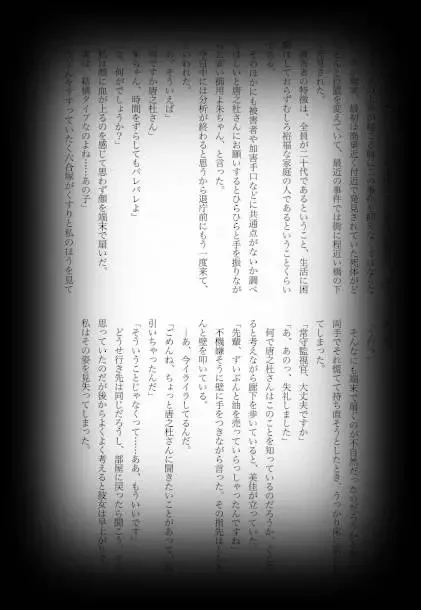 最初は廃棄区画付近で発見されていた死体がど
位置を変えていて、最近の事件では街に程近い橋の下
者の特徴は、全員が二十代であるということ、生活に困
ておらずむしろ裕福な家庭の人であるということくらい
そのほかにも被害者や加害手口などに共通点がないか調べ
ほしいと唐之杜さんにお願いするとひらひらと手を振りなが
御用よ朱ちゃん、と言った。
今日中には分析が終わると思うから退庁前にもう一度来て、
いわれた。
あ、そういえば」
ですか唐之杜さん」
ちゃん、時間をずらしてもバレバレよ」
、何がでしょうか？」
私は顔に血が上るのを感じて思わず顔を端末で扇いだ。
実は、結構タイプなのよね……あの子」
すすっていたく六合塚がくすりと私のほうを見て
そんなにも端末で扇ぐのが不自然だったのだろうか
両手でそれ慌てて持ち直そうとしたとき、うっかり床に
てしまった。
「常守監視官、大丈夫ですか」
「あ、あのっ、失礼しました」
何で唐之杜さんはこのことを知っているのだろうか、
ると考えながら廊下を歩いていると、美佳が立っていた。
「先輩、ずいぶんと油を売っていらっしゃったんですね」
不機嫌そうに壁に手をつきながら言った。その指先は
んと壁を叩いている。
―あ、今イライラしてるんだ。
「ごめんね、ちょっと唐之杜さんに聞きたいことがあって、
引いちゃったんだ」
「そういうことじゃなくって……ああ、もういいです」
どうせ行き先は同じだろうし、部屋に戻ったら聞こう、
思っていたのだが後からよくよく考えると彼女は早上がりで
私はその姿を見失ってしまった。